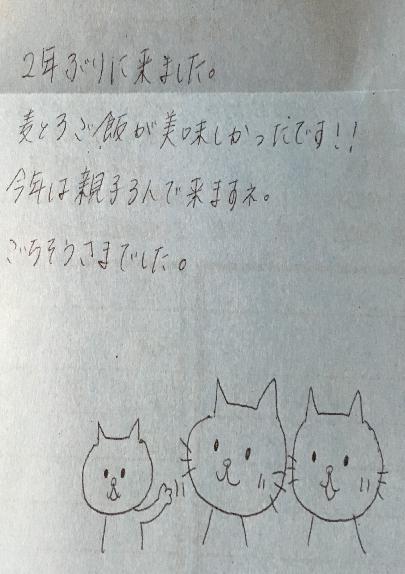 2年ぶりに来ました。
麦とろご飯が美味しかったです!!
今年は親子3人で来ますネ。
ごちそうさまでした。